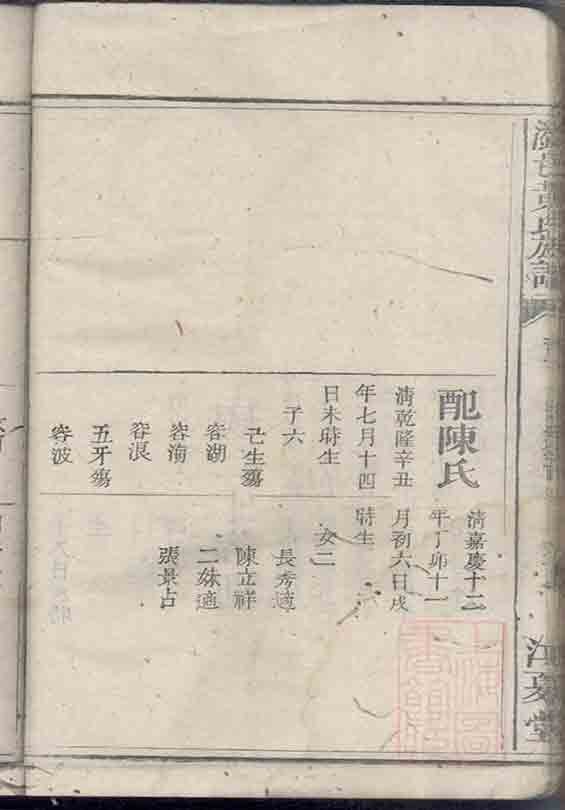 邑黃氏族譜
江夏堂
配陳氏
清乾隆辛丑
年七月十四
日未時生
子六
己生殤
容湖
容
容浪
五牙殤
容波
清嘉慶十二
年丁卯十一
月初六日戌
時生
女二
長秀適
陳立祥
二姝適
張景占
上海圖
書館藏